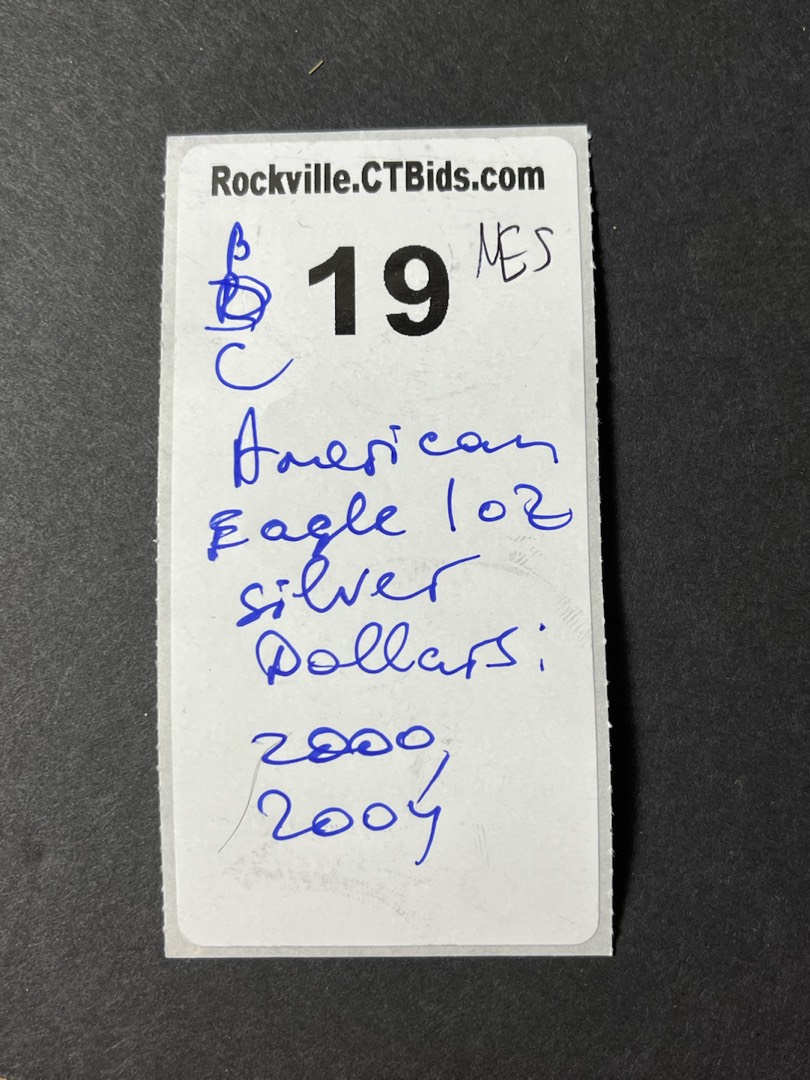 Rockville.CTBids.com
B
19 NES
C
American
Eagle 1 oz
Silver
Dollars:
2000,
2004